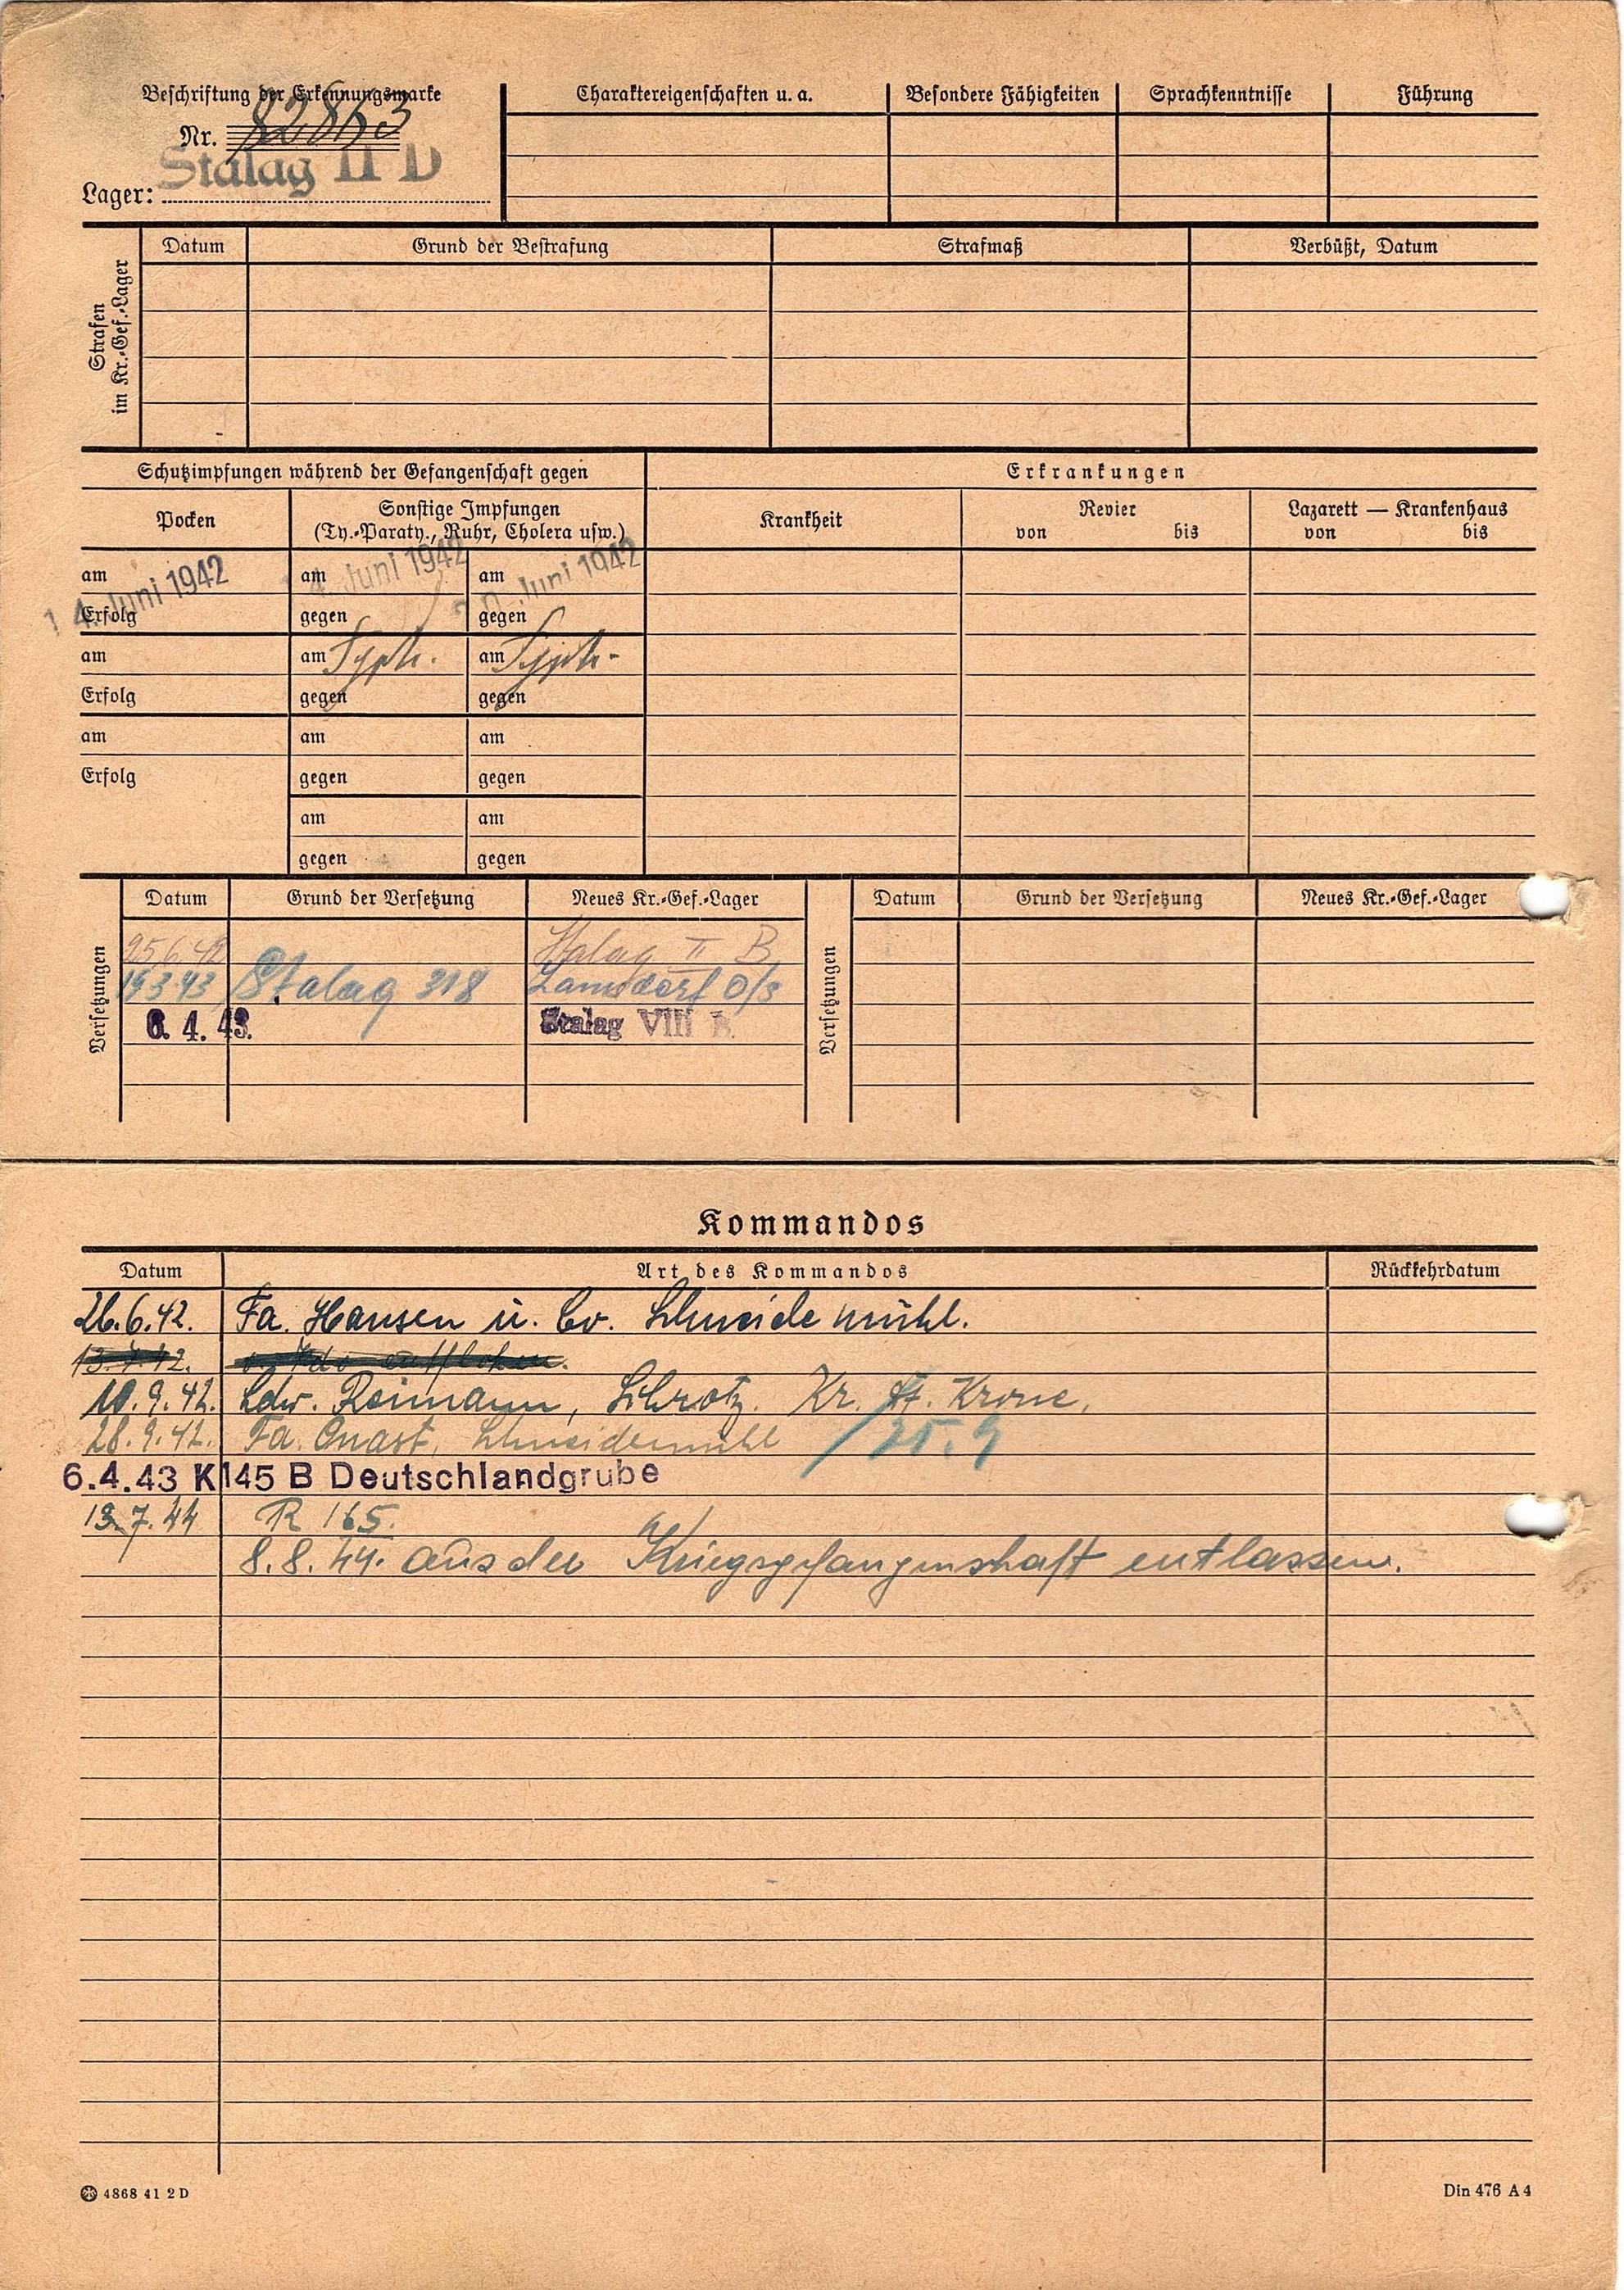 Beschriftung der Erkennungsmarke
Nr. 82863
Lager: Stalag II D
Charaktereigenschaften u. a. Besondere Fähigkeiten Sprachkenntnisse Führung
Strafen
im Kr.-Gef.-Lager
Datum Grund der Bestrafung Strafmaß Verbüßt, Datum
Schutzimpfungen während der Gefangenschaft gegen Erkrankungen
Pocken Sonstige Impfungen
(Ty.-Paraty., Ruhr, Cholera usw.)
Krankheit Revier Lazarett — Krankenhaus
von bis von bis
am 14. Juni 1942 am 4. Juni 1942 am Juni 1942
Erfolg gegen gegen
am am Typh. am Typh.
Erfolg gegen gegen
am am am
Erfolg gegen gegen
am am
gegen gegen
Versetzungen
Datum Grund der Versetzung Neues Kr.-Gef.-Lager
25.6.42 Stalag II B
19.3.43 Stalag 318 Lamsdorf O/S
6. 4. 43. Stalag VIII B.
Versetzungen
Datum Grund der Versetzung Neues Kr.-Gef.-Lager
Kommandos
Datum Art des Kommandos Rückkehrdatum
26.6.42. Fa. Hansen u. Co. Schneidemühl.
13.7.42. entflohen.
10.9.42. Ldw. Reimann, Schrotz. Kr. Dt. Krone.
28.9.42. Fa. Quast, Schneidemühl / 25.9
6.4.43 K 145 B Deutschlandgrube
13.7.44 R 165.
8.8.44. aus der Kriegsgefangenschaft entlassen.
4868 41 2 D
Din 476 A 4